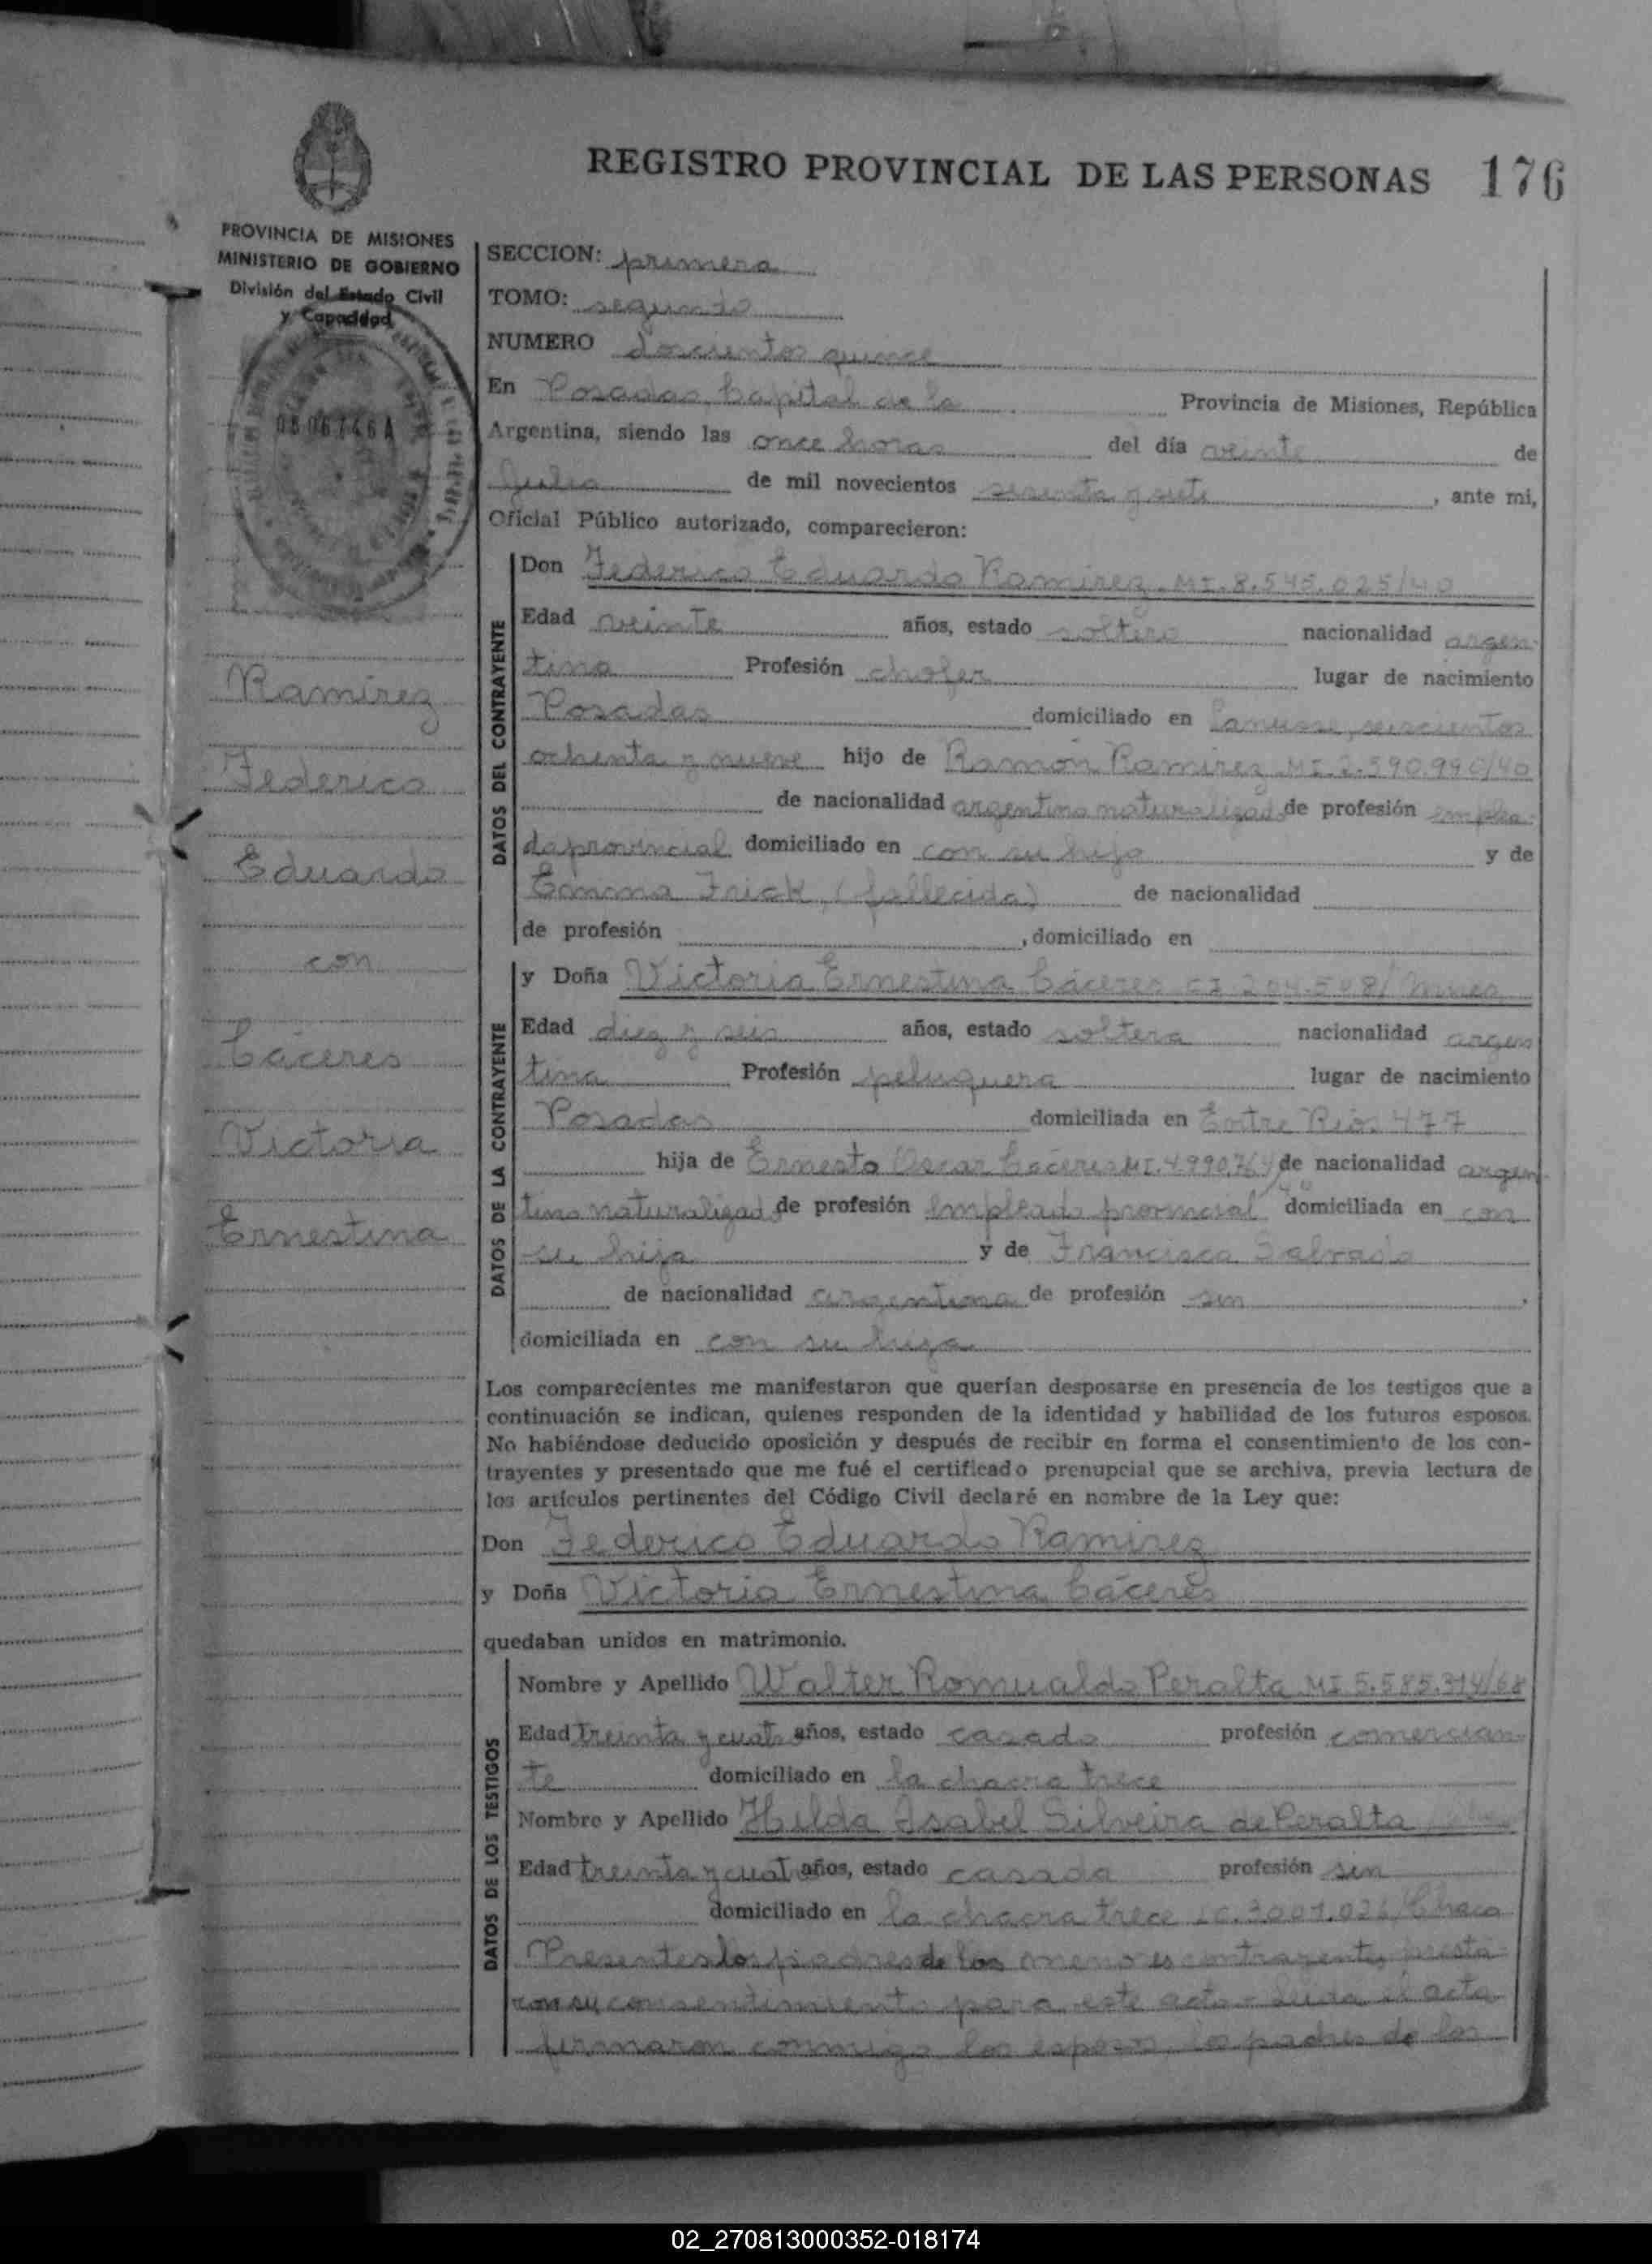 REGISTRO PROVINCIAL DE LAS PERSONAS 176
PROVINCIA DE MISIONES
MINISTERIO DE GOBIERNO
División del Estado Civil
y Capacidad
0506746A
Ramirez
Federico
Eduardo
con
Cáceres
Victoria
Ernestina
SECCION: primera
TOMO: segundo
NUMERO doscientos quince
En Posadas, Capital de la Provincia de Misiones, República
Argentina, siendo las once horas del día veinte de
Julio de mil novecientos sesenta y siete, ante mi,
Oficial Público autorizado, comparecieron:
DATOS DEL CONTRAYENTE
Don Federico Eduardo Ramirez MI. 8.545.025/40
Edad veinte años, estado soltero nacionalidad argen-
tina Profesión chofer lugar de nacimiento
Posadas domiciliado en Lanusse, seiscientos
ochenta y nueve hijo de Ramón Ramirez MI. 2.590.990/40
de nacionalidad argentino naturalizado de profesión emplea-
do provincial domiciliado en con su hijo y de
Emma Frick, (fallecida) de nacionalidad
de profesión , domiciliado en
DATOS DE LA CONTRAYENTE
y Doña Victoria Ernestina Cáceres CI 204.508/
Edad diez y seis años, estado soltera nacionalidad argen
tina Profesión peluquera lugar de nacimiento
Posadas domiciliada en Entre Rios 477
hija de Ernesto Oscar Cáceres MI. de nacionalidad argen-
tino naturalizado de profesión empleado provincial domiciliada en con
su hija y de Francisca Salvado
de nacionalidad argentina de profesión sin
domiciliada en con su hija
Los comparecientes me manifestaron que querían desposarse en presencia de los testigos que a
continuación se indican, quienes responden de la identidad y habilidad de los futuros esposos.
No habiéndose deducido oposición y después de recibir en forma el consentimiento de los con-
trayentes y presentado que me fué el certificado prenupcial que se archiva, previa lectura de
los artículos pertinentes del Código Civil declaré en nombre de la Ley que:
Don Federico Eduardo Ramirez
y Doña Victoria Ernestina Cáceres
quedaban unidos en matrimonio.
DATOS DE LOS TESTIGOS
Nombre y Apellido Walter Romualdo Peralta MI 5.585.314/68
Edad treinta y cuatro años, estado casado profesión comercian-
te domiciliado en la chacra trece
Nombre y Apellido Hilda Isabel Silveira de Peralta
Edad treinta y cuatro años, estado casada profesión sin
domiciliado en la chacra trece Chaco
Presentes los padres de los menores contrayentes presta
ron su consentimiento para este acto - Leida el acta
firmaron conmigo los esposos, los padres de los
02_270813000352-018174